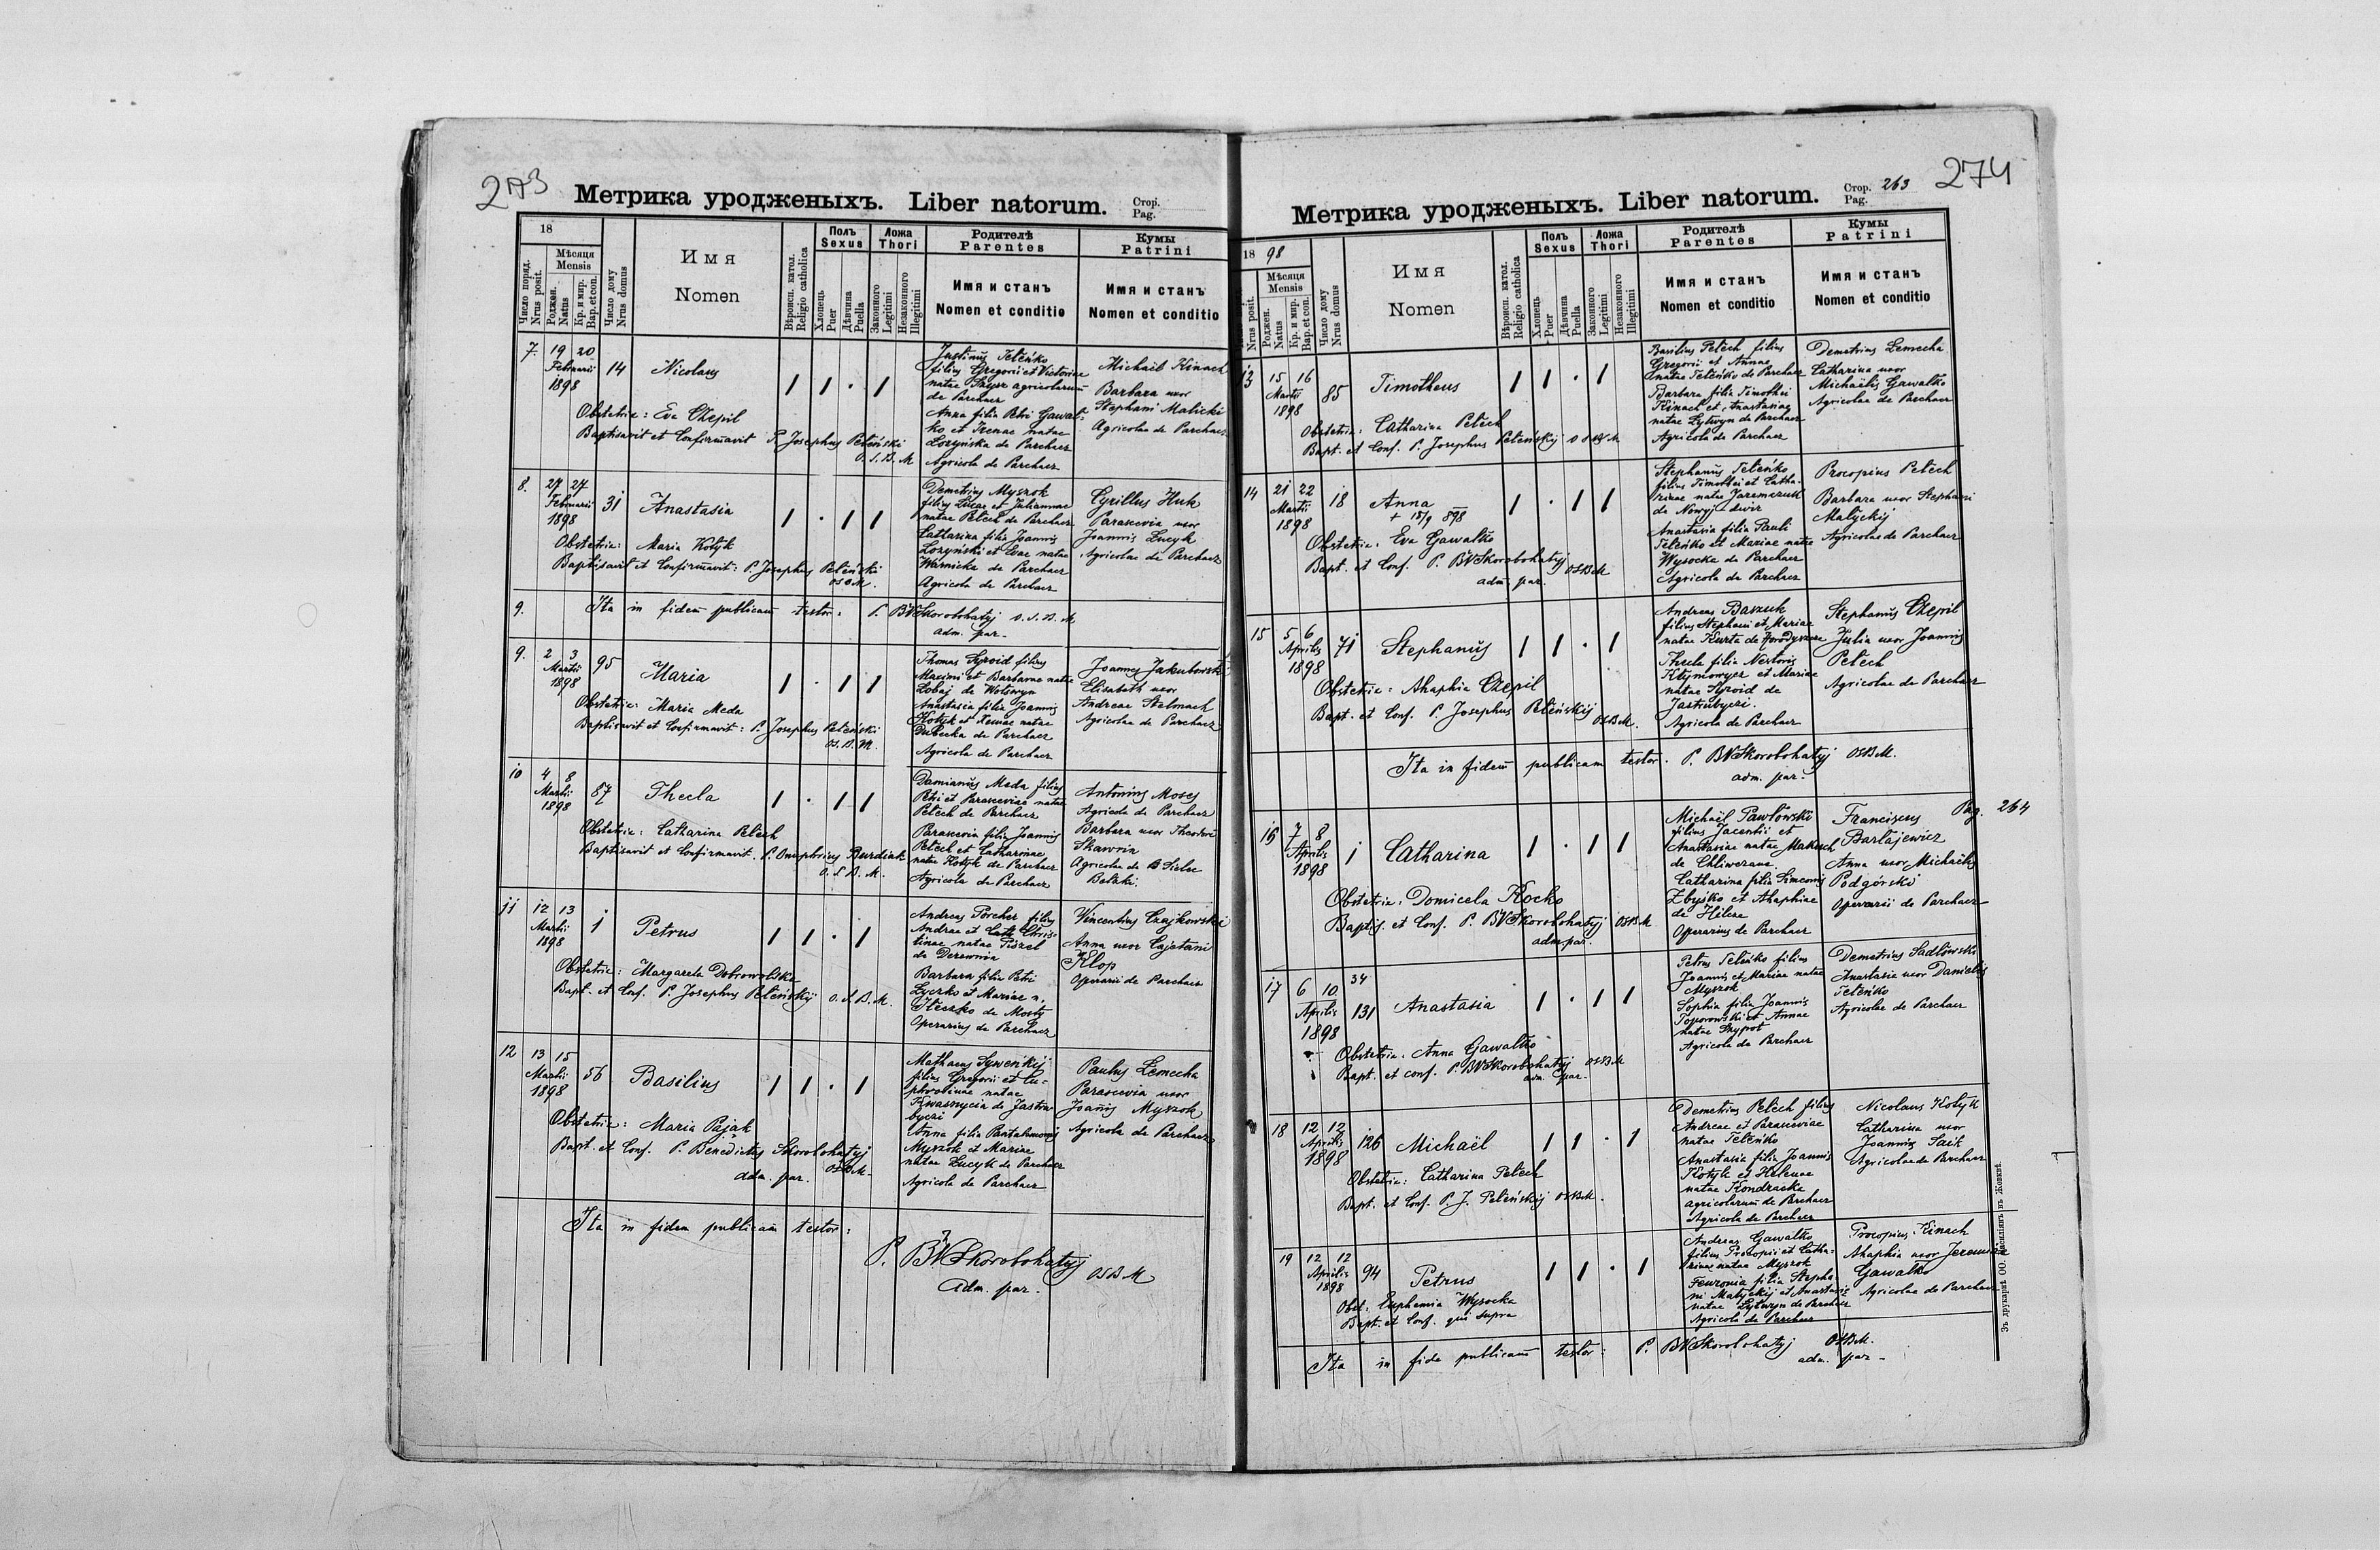 273
Метрика уродженыхъ. Liber natorum.
Стор.
Pag.
18
Число поряд.
Nrus posit.
Мѣсяця
Mensis
Роджен.
Natus
Кр. и мир.
Bap. et con.
Число дому
Nrus domus
Имя
Nomen
Вѣроисп. катол.
Religio catholica
Полъ
Sexus
Хлопець
Puer
Дѣвчина
Puella
Ложа
Thori
Законного
Legitimi
Незаконного
Illegitimi
Родителѣ
Parentes
Имя и станъ
Nomen et conditio
Кумы
Patrini
Имя и станъ
Nomen et conditio
7. 19 20
Februarii
1898
14 Nicolaus
Justinus Teleńko
filius Gregorii et Victoriae
natae agricolarum
de Parchacz
Anna filia Petri Gawał-
ko et Irenae natae
Łozyńska de Parchacz
Agricola de Parchacz
Michael Kinach
Barbara uxor
Stephani Malicki
Agricolae de Parchacz
Obstetrix: Eva Czepil
Baptisavit et Confirmavit P. Josephus Peleński
O. S. B. M
8. 27 27
Februarii
1898
31 Anastasia
Demetrius Myszok
filius Lucae et Juliannae
natae Pełech de Parchacz
Catharina filia Joannis
Łozyński et Evae natae
Warnicka de Parchacz
Agricola de Parchacz
Cyrillus Huk
Parascevia uxor
Joannis Łucyk
Agricolae de Parchacz
Obstetrix: Maria Kotyk
Baptisavit et Confirmavit: P. Josephus Peleński
OSBM.
9. Ita in fidem publicam testor: P. BVSkorobohatyj O. S. B. M.
adm. par.
9. 2 3
Martii
1898
95 Maria
Thomas Hyroid filius
Maximi et Barbarae natae
Łobaj de Wolswyn
Anastasia filia Joannis
Kotyk et Xeniae natae
de Parchacz
Agricola de Parchacz
Joannes Jakubowski
Elisabeth uxor
Andreae Stelmach
Agricolae de Parchacz
Obstetrix: Maria Meda
Baptisavit et Confirmavit: P. Josephus Peleński
OS. B. M.
10 4 8
Martii
1898
87 Thecla
Damianus Meda filius
Petri et Parasceviae natae
Pełech de Parchacz
Parascevia filia Joannis
Pełech et Catharinae
natae Kotyk de Parchacz
Agricola de Parchacz
Antonius Moses
Agricola de Parchacz
Barbara uxor Theodori
Skawron
Agricolae de Sielec
Bełzki.
Obstetrix: Catharina Pełech
Baptisavit et Confirmavit. P. Onuphrius Burdiak
O. S. B. M.
11 12 13
Martii
1898
1 Petrus
Andreas Porcher filius
Andreae et Chris-
tinae natae Piszel
de Derewnia
Barbara filia Petri
Łyczko et Mariae n.
Steczko de Mosty
Operarius de Parchacz
Vincentius Czajkowski
Anna uxor Cajetani
Klop
Operarii de Parchacz
Obstetrix: Margareta Dobrowolska
Bapt. et Conf. P. Josephus Peleńskij O. S. B. M.
12 13 15
Martii
1898
56 Basilius
Mathaeus Sywenkij
filius Gregorii et Eu-
phrosinae natae
Kwasnycia de Jastru-
byczi
Anna filia Pantaleonis
Myszok et Mariae
natae Łucyk de Parchacz
Agricola de Parchacz
Paulus Łemecha
Parascevia uxor
Joannis Myszok
Agricola de Parchacz
Obstetrix: Maria Pająk
Bapt. et Conf. P. Benedictus Skorobohatyj
adm. par. OSBM-
Ita in fidem publicam testor:
P. BVSkorobohatyj
Adm. par. OSBM
274
Метрика уродженыхъ. Liber natorum.
Стор.
Pag. 263
18 98
Nrus posit.
Мѣсяця
Mensis
Роджен.
Natus
Кр. и мир.
Bap. et con.
Число дому
Nrus domus
Имя
Nomen
Вѣроисп. катол.
Religio catholica
Полъ
Sexus
Хлопець
Puer
Дѣвчина
Puella
Ложа
Thori
Законного
Legitimi
Незаконного
Illegitimi
Родителѣ
Parentes
Имя и станъ
Nomen et conditio
Кумы
Patrini
Имя и станъ
Nomen et conditio
13 15 16
Martii
1898
85 Timotheus
Basilius Pełech filius
Gregorii et Annae
natae Teleńko de Parchacz
Barbara filia Timothei
Kinach et Anastasiae
natae Łytwyn de Parchacz
Agricola de Parchacz
Demetrius Łemecha
Catharina uxor
Michaëlis Gawałko
Agricolae de Parchacz
Obstetrix: Catharina Pełech
Bapt. et Conf. P. Josephus Peleńskij OSBM
14 21 22
Martii
1898
18 Anna
+ 15/9 898
Stephanus Teleńko
filius Timothei et Catha-
rinae natae Jaremczuk
de Nowyj dwir
Anastasia filia Pauli
Teleńko et Mariae natae
Wysocka de Parchacz
Agricola de Parchacz
Procopius Pełech
Barbara uxor Stephani
Malyckij
Agricolae de Parchacz
Obstetrix. Eva Gawałko
Bapt. et Conf. P. BVSkorobohatyj OSBM
adm. par.
15 5 6
Aprilis
1898
71 Stephanus
Andreas Baszuk
filius Stephani et Mariae
natae Kurta de Horodyszcze
Thecla filia Nestoris
Klymowycz et Mariae
natae Hyroid de
Jastrubyczi.
Agricola de Parchacz
Stephanus Czepil
Julia uxor Joannis
Pełech
Agricolae de Parchacz
Obstetrix: Ahaphia Czepil
Bapt. et Conf. P. Josephus Peleńskij OSBM.
Ita in fidem publicam testor. P. BVSkorobohatyj OSBM.
adm. par.
Pag. 264
16 7 8
Aprilis
1898
1 Catharina
Michaël Pawłowski
filius Jacentii et
Anastasiae natae
de Chliwczane.
Catharina filia Simeonis
Zbyśko et Ahaphiae
de Hilcze
Operarius de Parchacz
Franciscus
Bartajewicz
Anna uxor Michaëlis
Podgórski
Operarii de Parchacz
Obstetrix: Domicela Kocko
Baptis. et Conf. P. BVSkorobohatyj OSBM
adm par.
17 6 10
Aprilis
1898
34
131 Anastasia
Petrus Teleńko filius
Joannis et Mariae natae
Myszok
Sophia filia Joannis
Toporowski et Annae
natae
Agricola de Parchacz
Demetrius Sadłowski
Anastasia uxor Danielis
Teleńko
Agricolae de Parchacz
Obstetrix. Anna Gawałko
Bapt. et conf. P. BVSkorobohatyj OSBM
adm. par.
18 12 12
Aprilis
1898
126 Michaël
Demetrius Pełech filius
Andreae et Parasceviae
natae Teleńko
Anastasia filia Joannis
Kotyk et Helenae
natae Kondracka
agricolarum de Parchacz
Agricola de Parchacz
Nicolaus Kotyk
Catharina uxor
Joannis Saik
Agricolae de Parchacz
Obstetrix: Catharina Pełech
Bapt. et Conf. P. J. Peleńskij OSBM.
19 12 12
Aprilis
1898
94 Petrus
Andreas Gawałko
filius Procopii et Catha-
rinae natae Myszok
Fewronia filia Stepha-
ni Malyckij et Anastasiae
natae Łytwyn de Parchacz
Agricola de Parchacz
Procopius Kinach
Ahaphia uxor Jeremiae
Gawałko
Agricolae de Parchacz
Obst. Euphemia Wysocka
Bapt. et Conf. qui supra
Ita in fide publicam testor: P. BVSkorobohatyj OSBM.
adm. par-
Зъ друкарнѣ ОО. Василіянъ въ Жовквѣ.